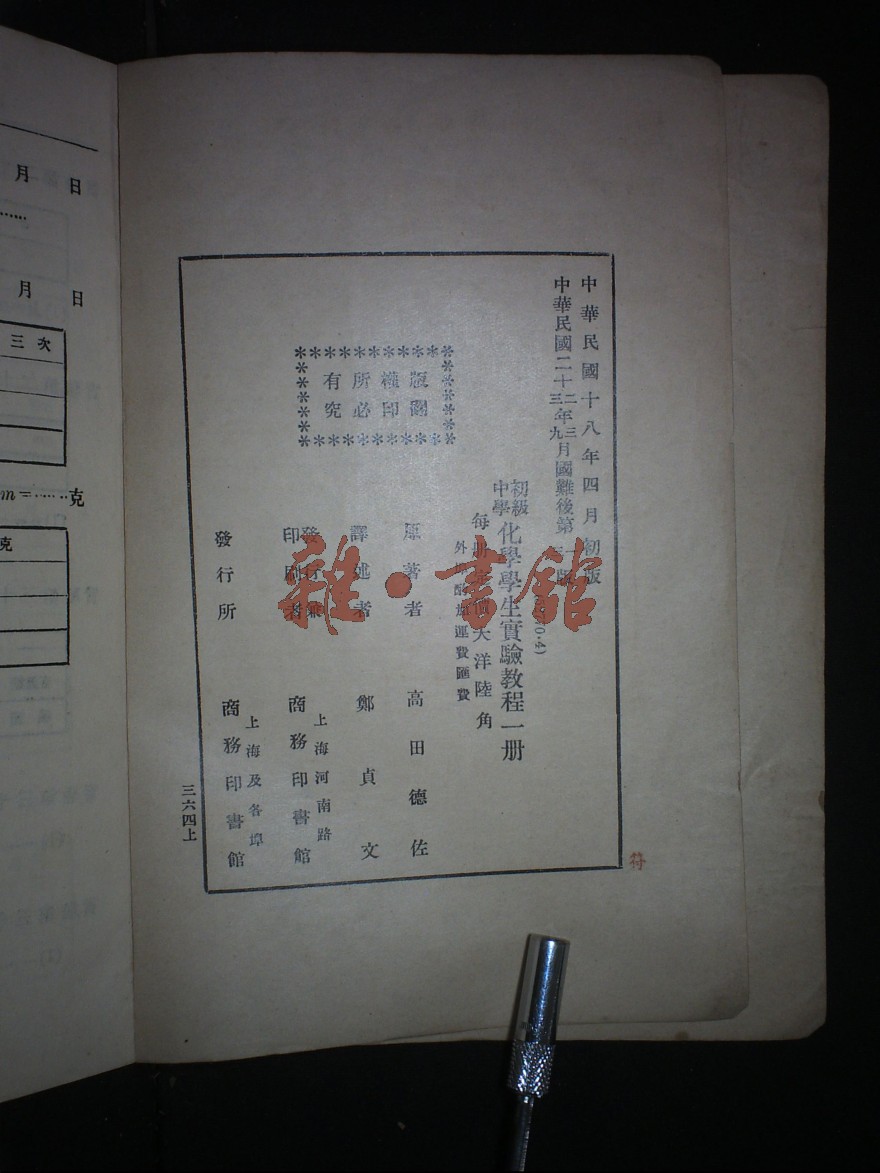 中華民國十八年四月初版
中華民國二十二年三月國難後第一版
三九
(
0·4)
初級
中學
化學學生實驗教程一册
每册
大洋陸角
外埠酌
運費匯費
版權所有
翻印必究
原著者
高田德佐
譯述者
鄭貞文
發行兼
印刷者
上海河南路
商務印書館
發行所
上海及各埠
商務印書館
三六四上
符
雜·書館
月 日
月 日
三次
m=······克
克